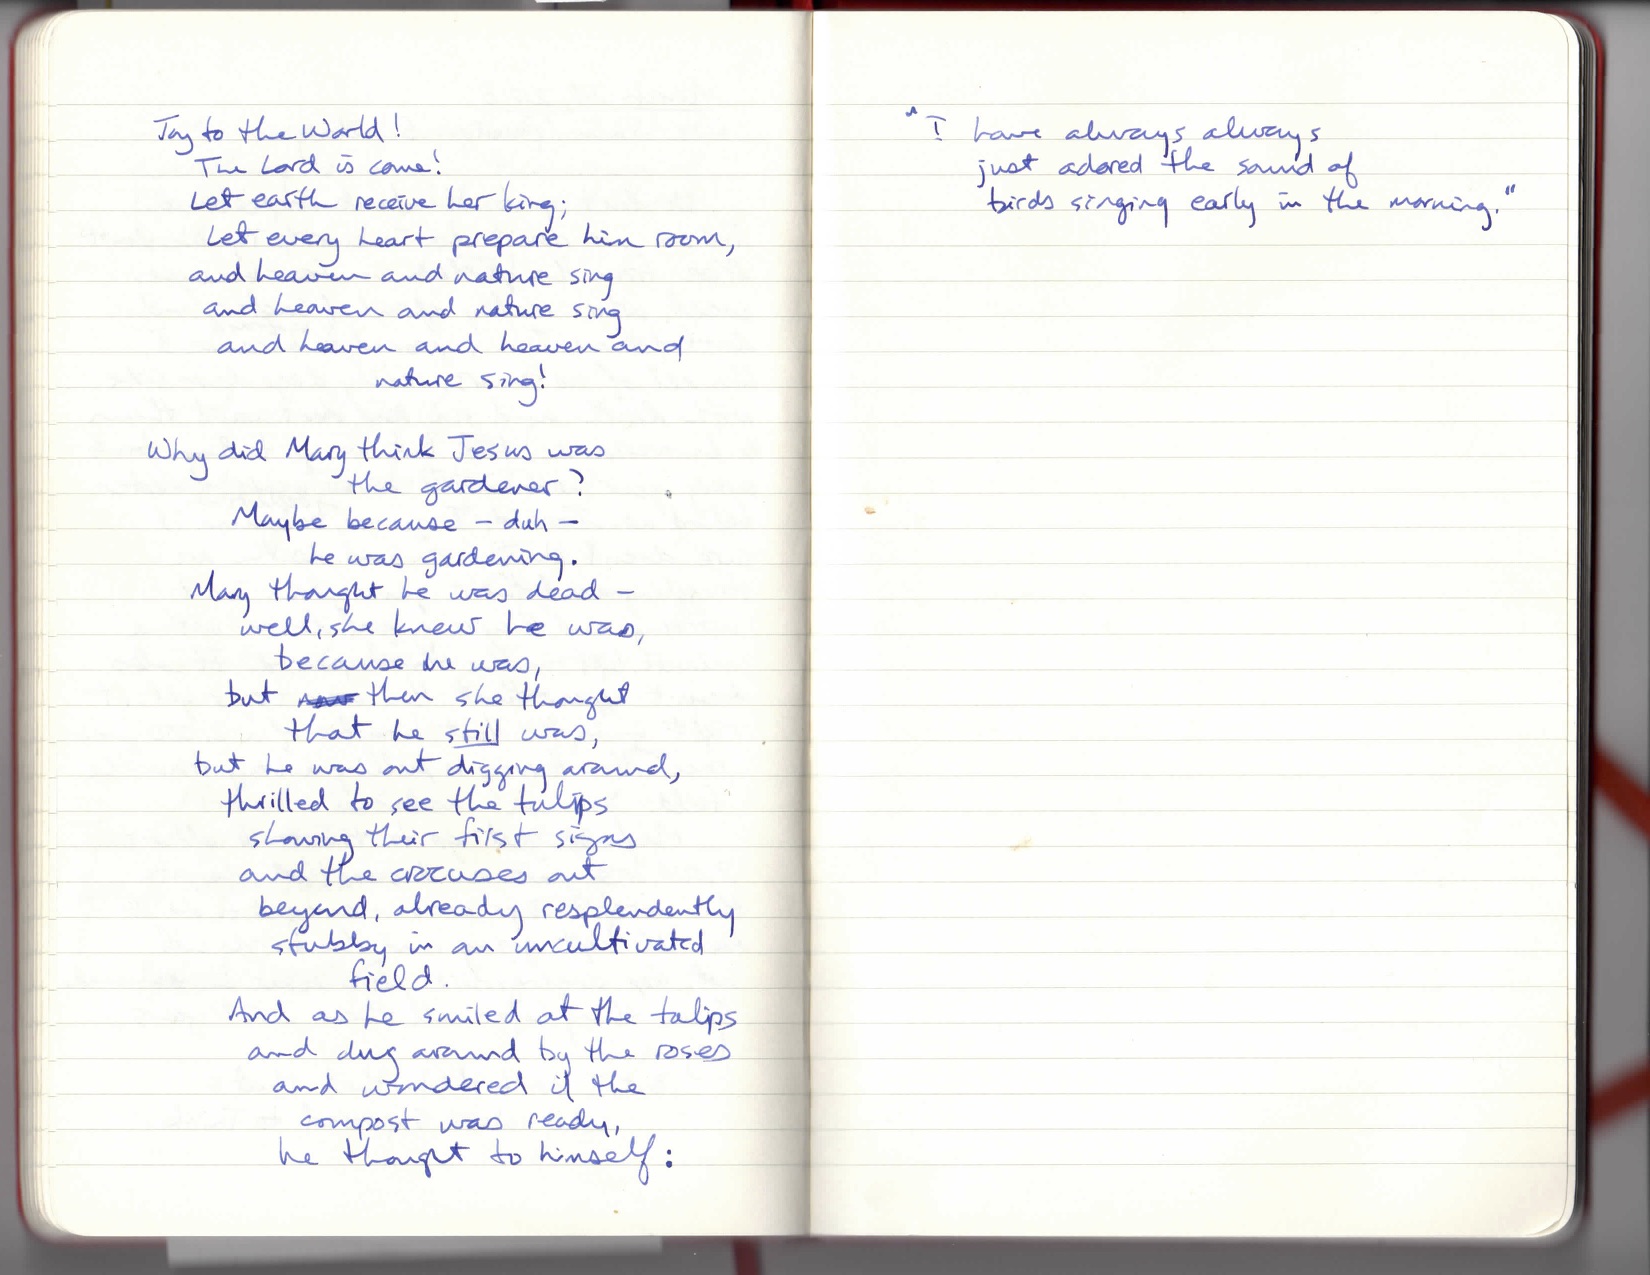 Joy to the World!
The Lord is come!
Let earth receive her king;
Let every heart prepare him room,
and heaven and nature sing
and heaven and nature sing
and heaven and heaven and
nature sing!
Why did Mary think Jesus was
the gardener?
Maybe because – duh –
he was gardening.
Mary thought he was dead –
well, she knew he was,
because he was,
but then she thought
that he still was,
but he was out digging around,
thrilled to see the tulips
showing their first signs
and the crocuses out
beyond, already resplendently
stubby in an uncultivated
field.
And as he smiled at the tulips
and dug around by the roses
and wondered if the
compost was ready,
he thought to himself:
"I have always always
just adored the sound of
birds singing early in the morning."